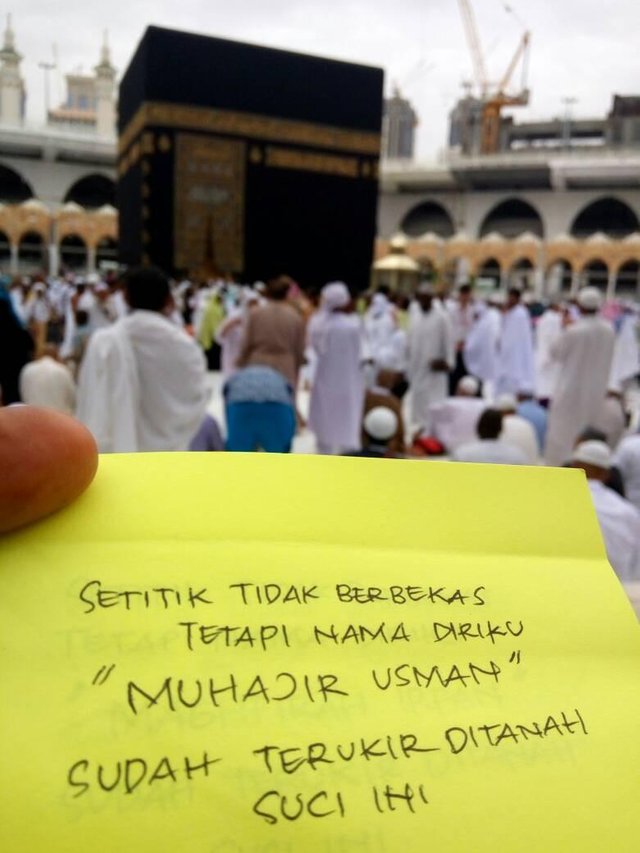 SETITIK TIDAK BERBEKAS
TETAPI NAMA DIRIKU
"MUHAJIR USMAN"
SUDAH TERUKIR DITANAH
SUCI INI